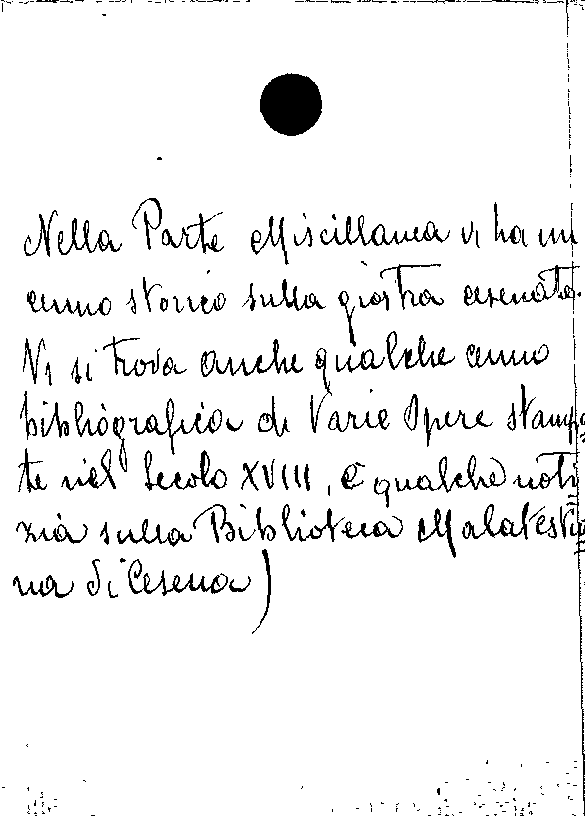 Nella Parte Miscillanea vi ha un
cenno storico sulla giostra cesenate.
Vi si trova anche qualche cenno
bibliografico di Varie Opere stampa
te nel Secolo XVIII, e qualche noti
zia sulla Biblioteca Malatestia
na di Cesena)